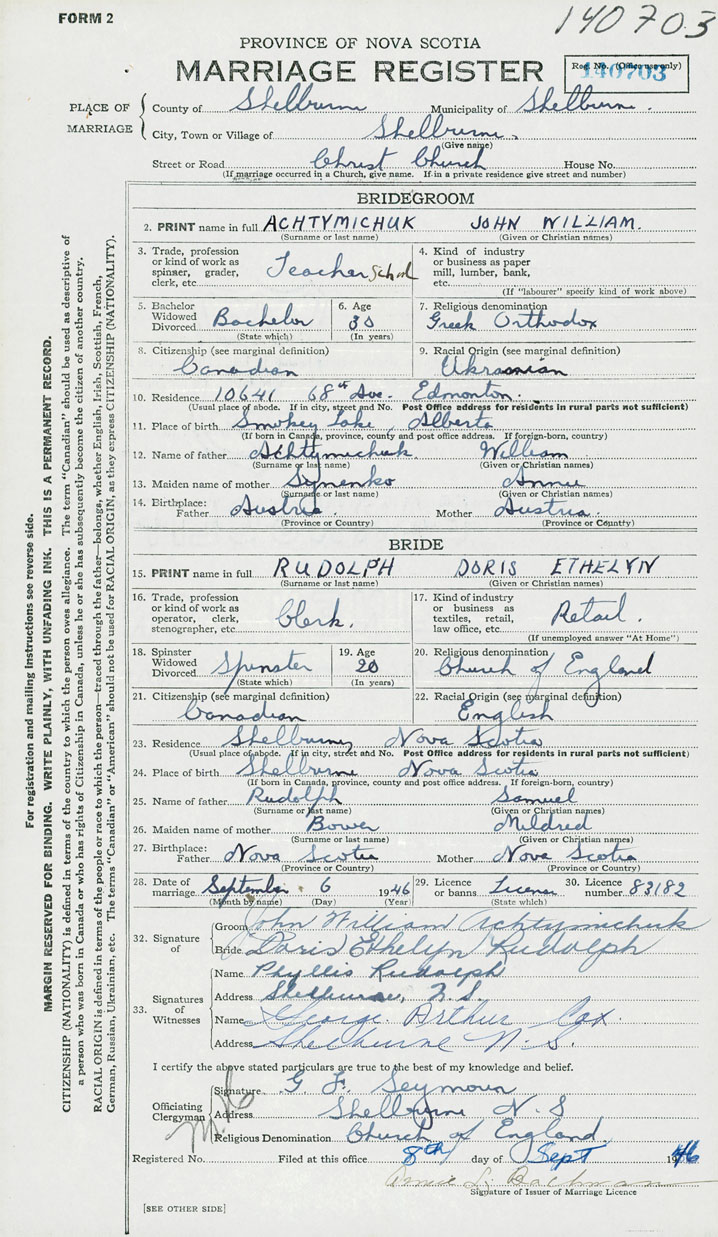 FORM 2
140703
PROVINCE OF NOVA SCOTIA
MARRIAGE REGISTER
Reg. No. (Office use only)
140703
PLACE OF MARRIAGE
County of Shelburne Municipality of Shelburne.
City, Town or Village of Shelburne.
(Give name)
Street or Road Christ Church House No.
(If marriage occurred in a Church, give name. If in a private residence give street and number)
BRIDEGROOM
2. PRINT name in full ACHTYMICHUK JOHN WILLIAM.
(Surname or last name) (Given or Christian names)
3. Trade, profession or kind of work as spinner, grader, clerk, etc. Teacher School
4. Kind of industry or business as paper mill, lumber, bank, etc.
(If "labourer" specify kind of work above)
5. Bachelor Widowed Divorced Bachelor
(State which)
6. Age 30
(In years)
7. Religious denomination
Greek Orthodox
8. Citizenship (see marginal definition)
Canadian
9. Racial Origin (see marginal definition)
Ukranian
10. Residence 10641 68th Ave. Edmonton.
(Usual place of abode. If in city, street and No. Post Office address for residents in rural parts not sufficient)
11. Place of birth Smokey Lake, Alberta
(If born in Canada, province, county and post office address. If foreign-born, country)
12. Name of father Achtymichuk William
(Surname or last name) (Given or Christian names)
13. Maiden name of mother Symenko Annie
(Surname or last name) (Given or Christian names)
14. Birthplace: Father Austria Mother Austria.
(Province or Country) (Province or Country)
BRIDE
15. PRINT name in full RUDOLPH DORIS ETHELYN
(Surname or last name) (Given or Christian names)
16. Trade, profession or kind of work as operator, clerk, stenographer, etc. Clerk.
17. Kind of industry or business as textiles, retail, law office, etc. Retail.
(If unemployed answer "At Home")
18. Spinster Widowed Divorced Spinster
(State which)
19. Age 20
(In years)
20. Religious denomination
Church of England
21. Citizenship (see marginal definition)
Canadian
22. Racial Origin (see marginal definition)
English
23. Residence Shelburne, Nova Scotia
(Usual place of abode. If in city, street and No. Post Office address for residents in rural parts not sufficient)
24. Place of birth Shelburne Nova Scotia
(If born in Canada, province, county and post office address. If foreign-born, country)
25. Name of father Rudolph Samuel
(Surname or last name) (Given or Christian names)
26. Maiden name of mother Bower Mildred
(Surname or last name) (Given or Christian names)
27. Birthplace: Father Nova Scotia Mother Nova Scotia
(Province or Country) (Province or Country)
28. Date of marriage September 6 1946
(Month by name) (Day) (Year)
29. Licence or banns License
(State which)
30. Licence number 83182
32. Signature of
Groom John William Achtymichuk
Bride Doris Ethelyn Rudolph
33. Signatures of Witnesses
Name Phyllis Rudolph
Address Shelburne, N.S.
Name George Arthur Cox.
Address Shelburne N.S.
I certify the above stated particulars are true to the best of my knowledge and belief.
Officiating Clergyman
Signature G. F. Seymour
Address Shelburne N.S
Religious Denomination Church of England.
Registered No. Filed at this office 8th day of Sept 1946
Signature of Issuer of Marriage Licence
[SEE OTHER SIDE]
For registration and mailing instructions see reverse side.
MARGIN RESERVED FOR BINDING. WRITE PLAINLY, WITH UNFADING INK. THIS IS A PERMANENT RECORD.
CITIZENSHIP (NATIONALITY) is defined in terms of the country to which the person owes allegiance. The term "Canadian" should be used as descriptive of
a person who was born in Canada or who has rights of Citizenship in Canada, unless he or she has subsequently become the citizen of another country.
RACIAL ORIGIN is defined in terms of the people or race to which the person—traced through the father—belongs, whether English, Irish, Scottish, French,
German, Russian, Ukrainian, etc. The terms "Canadian" or "American" should not be used for RACIAL ORIGIN, as they express CITIZENSHIP (NATIONALITY).